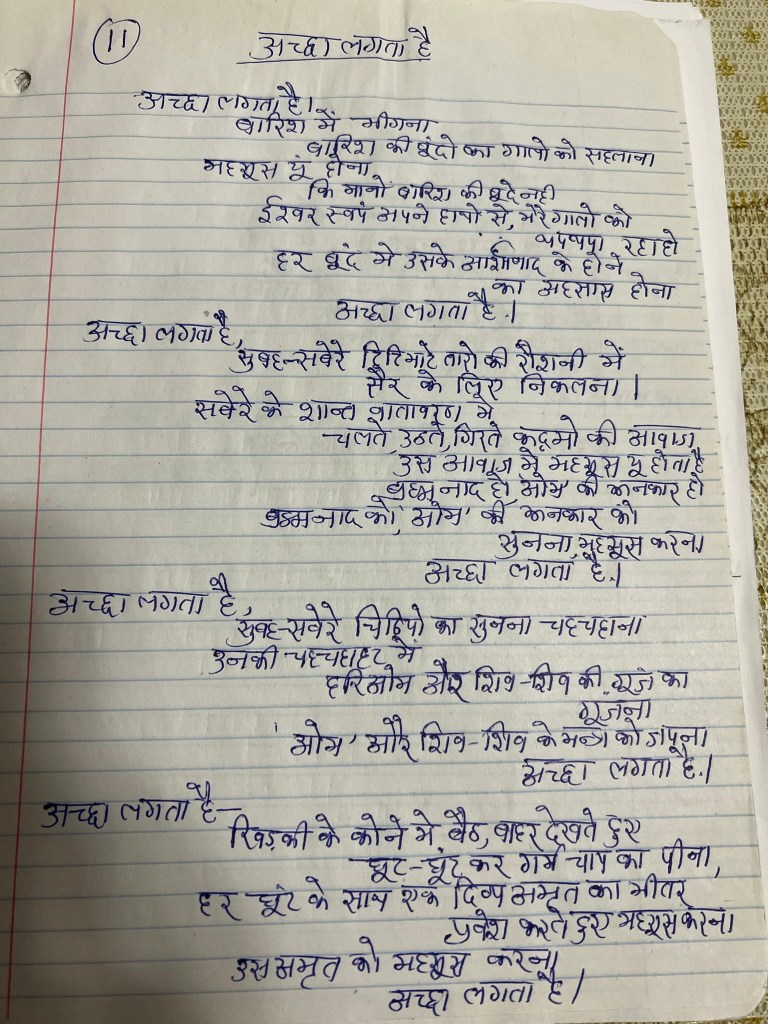 11
अच्छा लगता है
अच्छा लगता है।
बारिश में भीगना
बारिश की बूंदो का गालो को सहलाना
महसूस यूं होना
कि मानों बारिश की बूंदे नही
ईश्वर स्वयं अपने हाथो से, मेरे गालो को
थपथपा रहा हो
हर बूंद मे उसके आर्शीवाद के होने
का अहसास होना
अच्छा लगता है।
अच्छा लगता है,
सुबह-सवेरे टिमटिमाटे तारो की रौशनी में
सैर के लिए निकलना।
सवेरे के शान्त वातावरण मे
चलते, उठते, गिरते कदमो की आवाज
उस आवाज मे महसूस यू होता है
ब्रह्म नाद हो, 'ओम' की झनकार हो
ब्रह्म नाद को, 'ओम' की झनकार को
सुनना, महसूस करना
अच्छा लगता है।
अच्छा लगता है,
सुबह-सवेरे चिड़ियो का सुनना चहचहाना
उनकी चहचहाहट में
हरिओम और शिव-शिव की गूजं का
गूजंना
'ओम' और शिव-शिव के मन्त्र को जपना
अच्छा लगता है।
अच्छा लगता है-
खिड़की के कोने मे बैठ, बाहर देखते हुए
घूट-घूंट कर गर्म चाय का पीना,
हर घूंट के साथ एक दिव्य अमृत का भीतर
प्रवेश करते हुए महसूस करना
उस अमृत को महसूस करना
अच्छा लगता है।